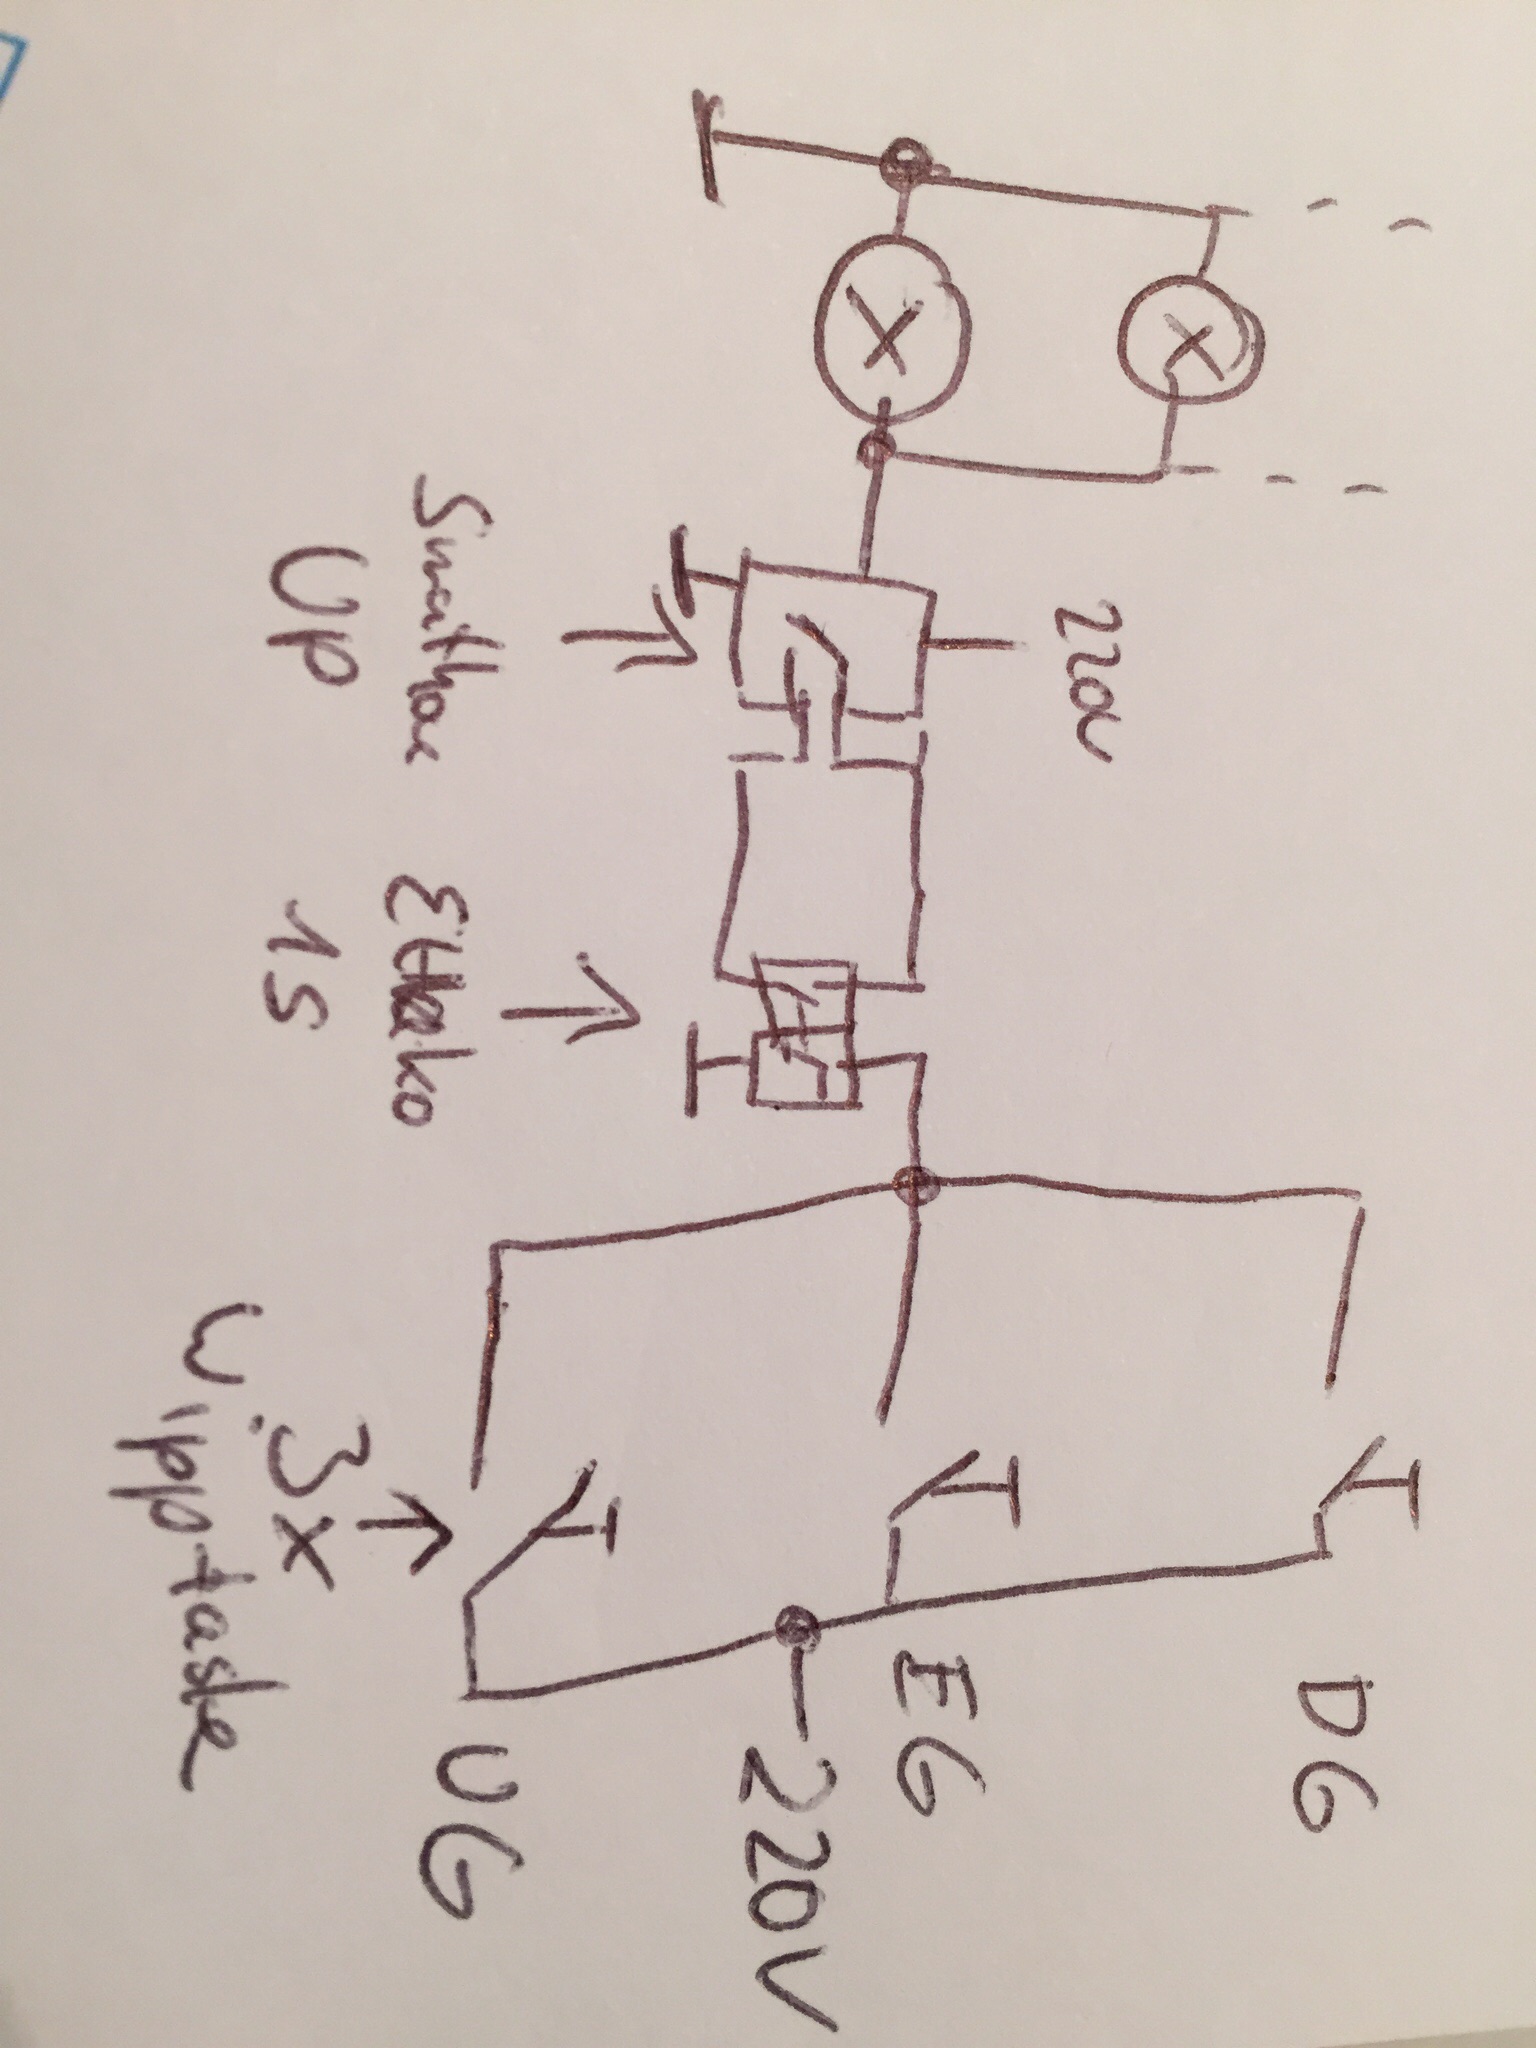 220V
UP
Eltako
1S
3x
Wipptaste
DG
EG
220V
UG